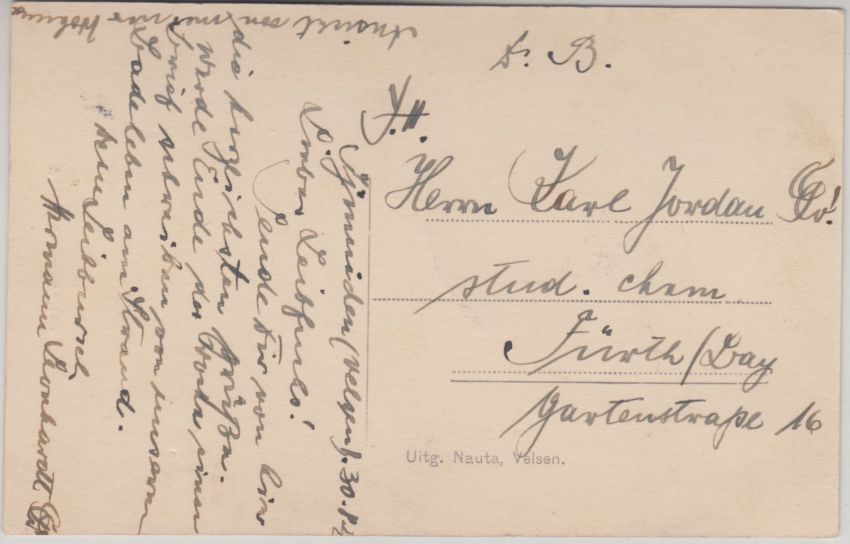 D. B.
Herrn Karl Jordan
stud. chem.
Fürth/Bay
Gartenstraße 16
Uitg. Nauta, Velsen.
P. Ijmuiden (Velsen), 30.8.
Lieber Leibfuchs!
Sende Dir von hier
die herzlichsten Grüße.
Werde Ende der Woche einen
Brief schreiben von unserem
Badeleben am Strand.
Dein Leibbursch
Hermann Leonhardt
Ansicht von meiner